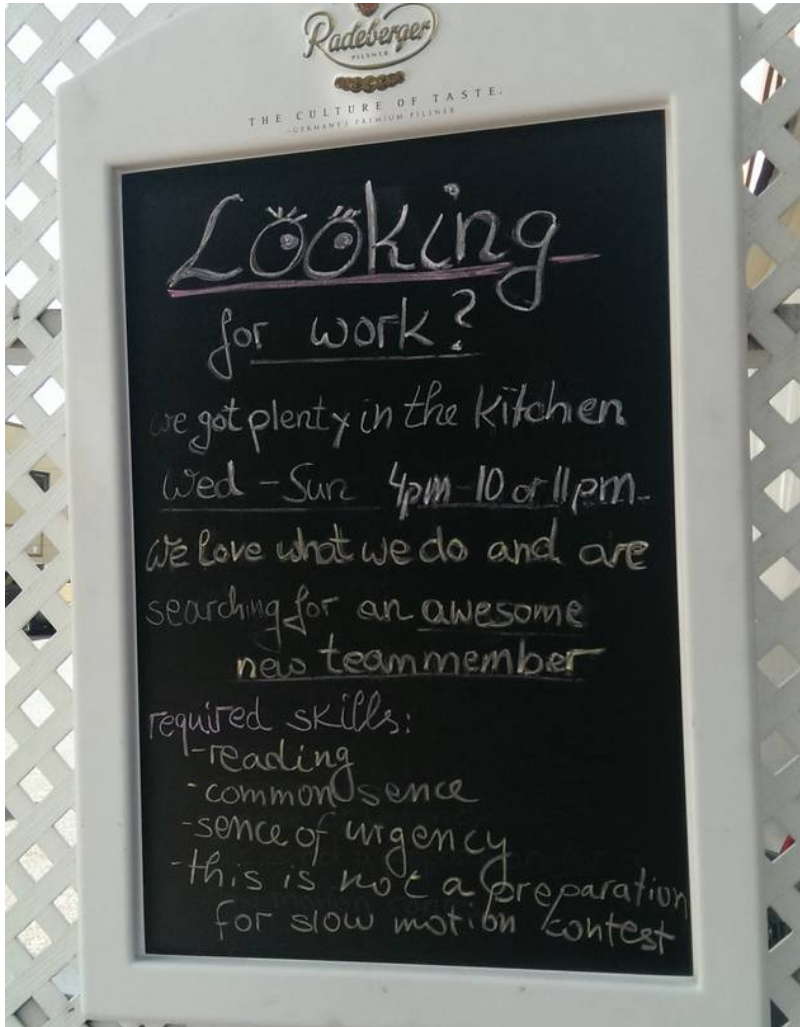 Radeberger
PILSNER
THE CULTURE OF TASTE.
GERMANY'S PREMIUM PILSNER
Looking
for work?
we got plenty in the kitchen
Wed - Sun 4pm-10 or 11pm
we love what we do and are
searching for an awesome
new teammember
required skills:
-reading
-common sence
-sence of urgency
-this is not a preparation
for slow motion contest